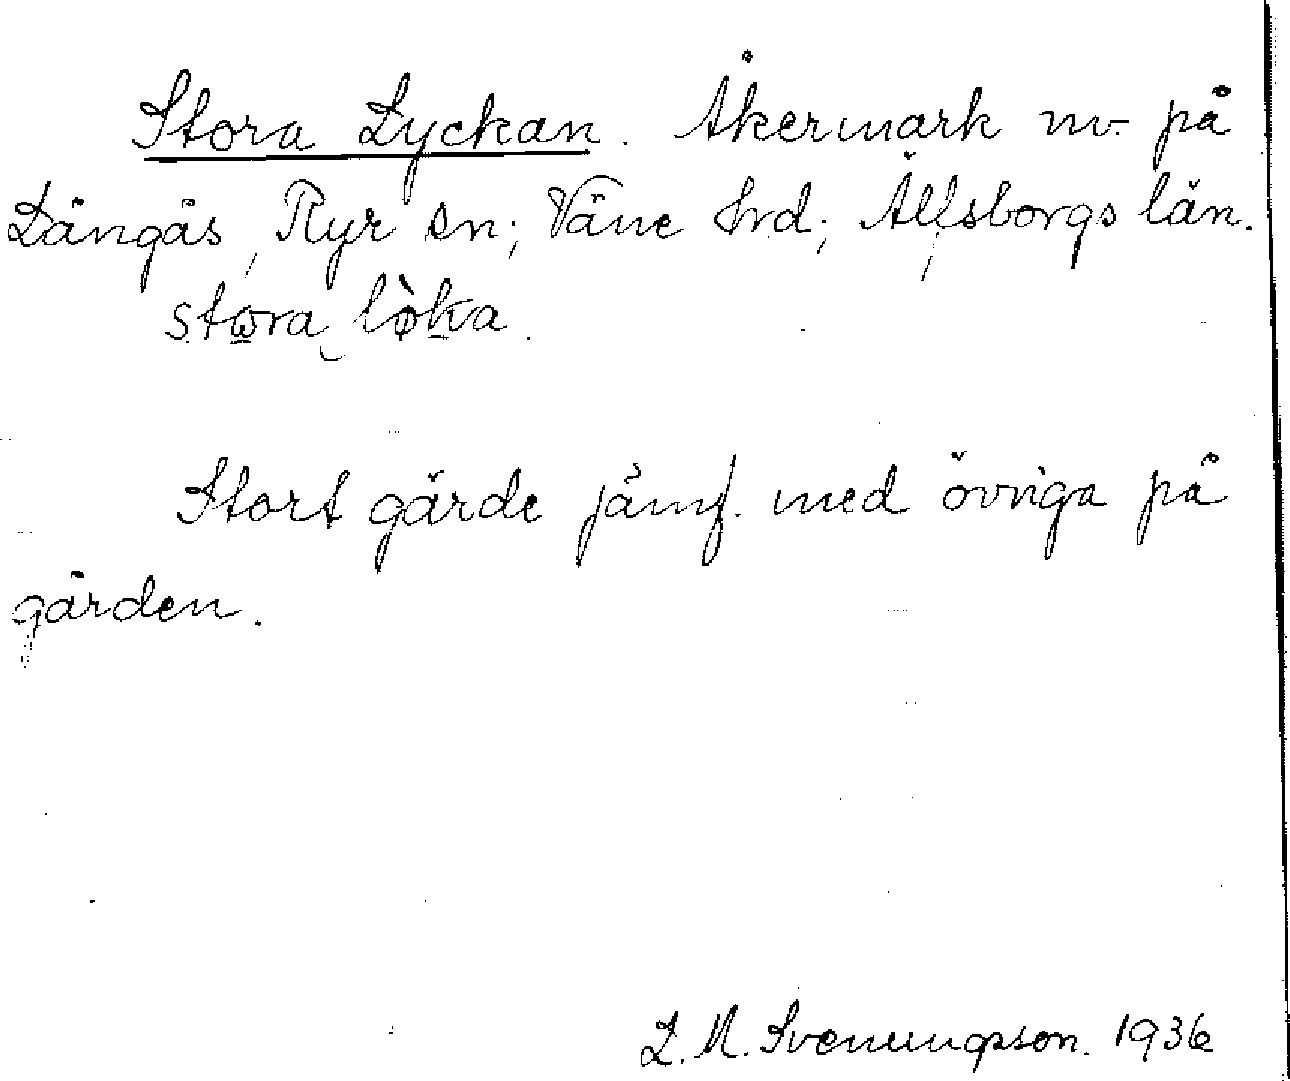 Stora Lyckan. Åkermark nv. på
Långås, Ryr sn; Väne hrd; Älfsborgs län.
stⱺra lø̀ka.
Stort gärde jämf. med övriga på
gården.
L. M. Svenungsson. 1936